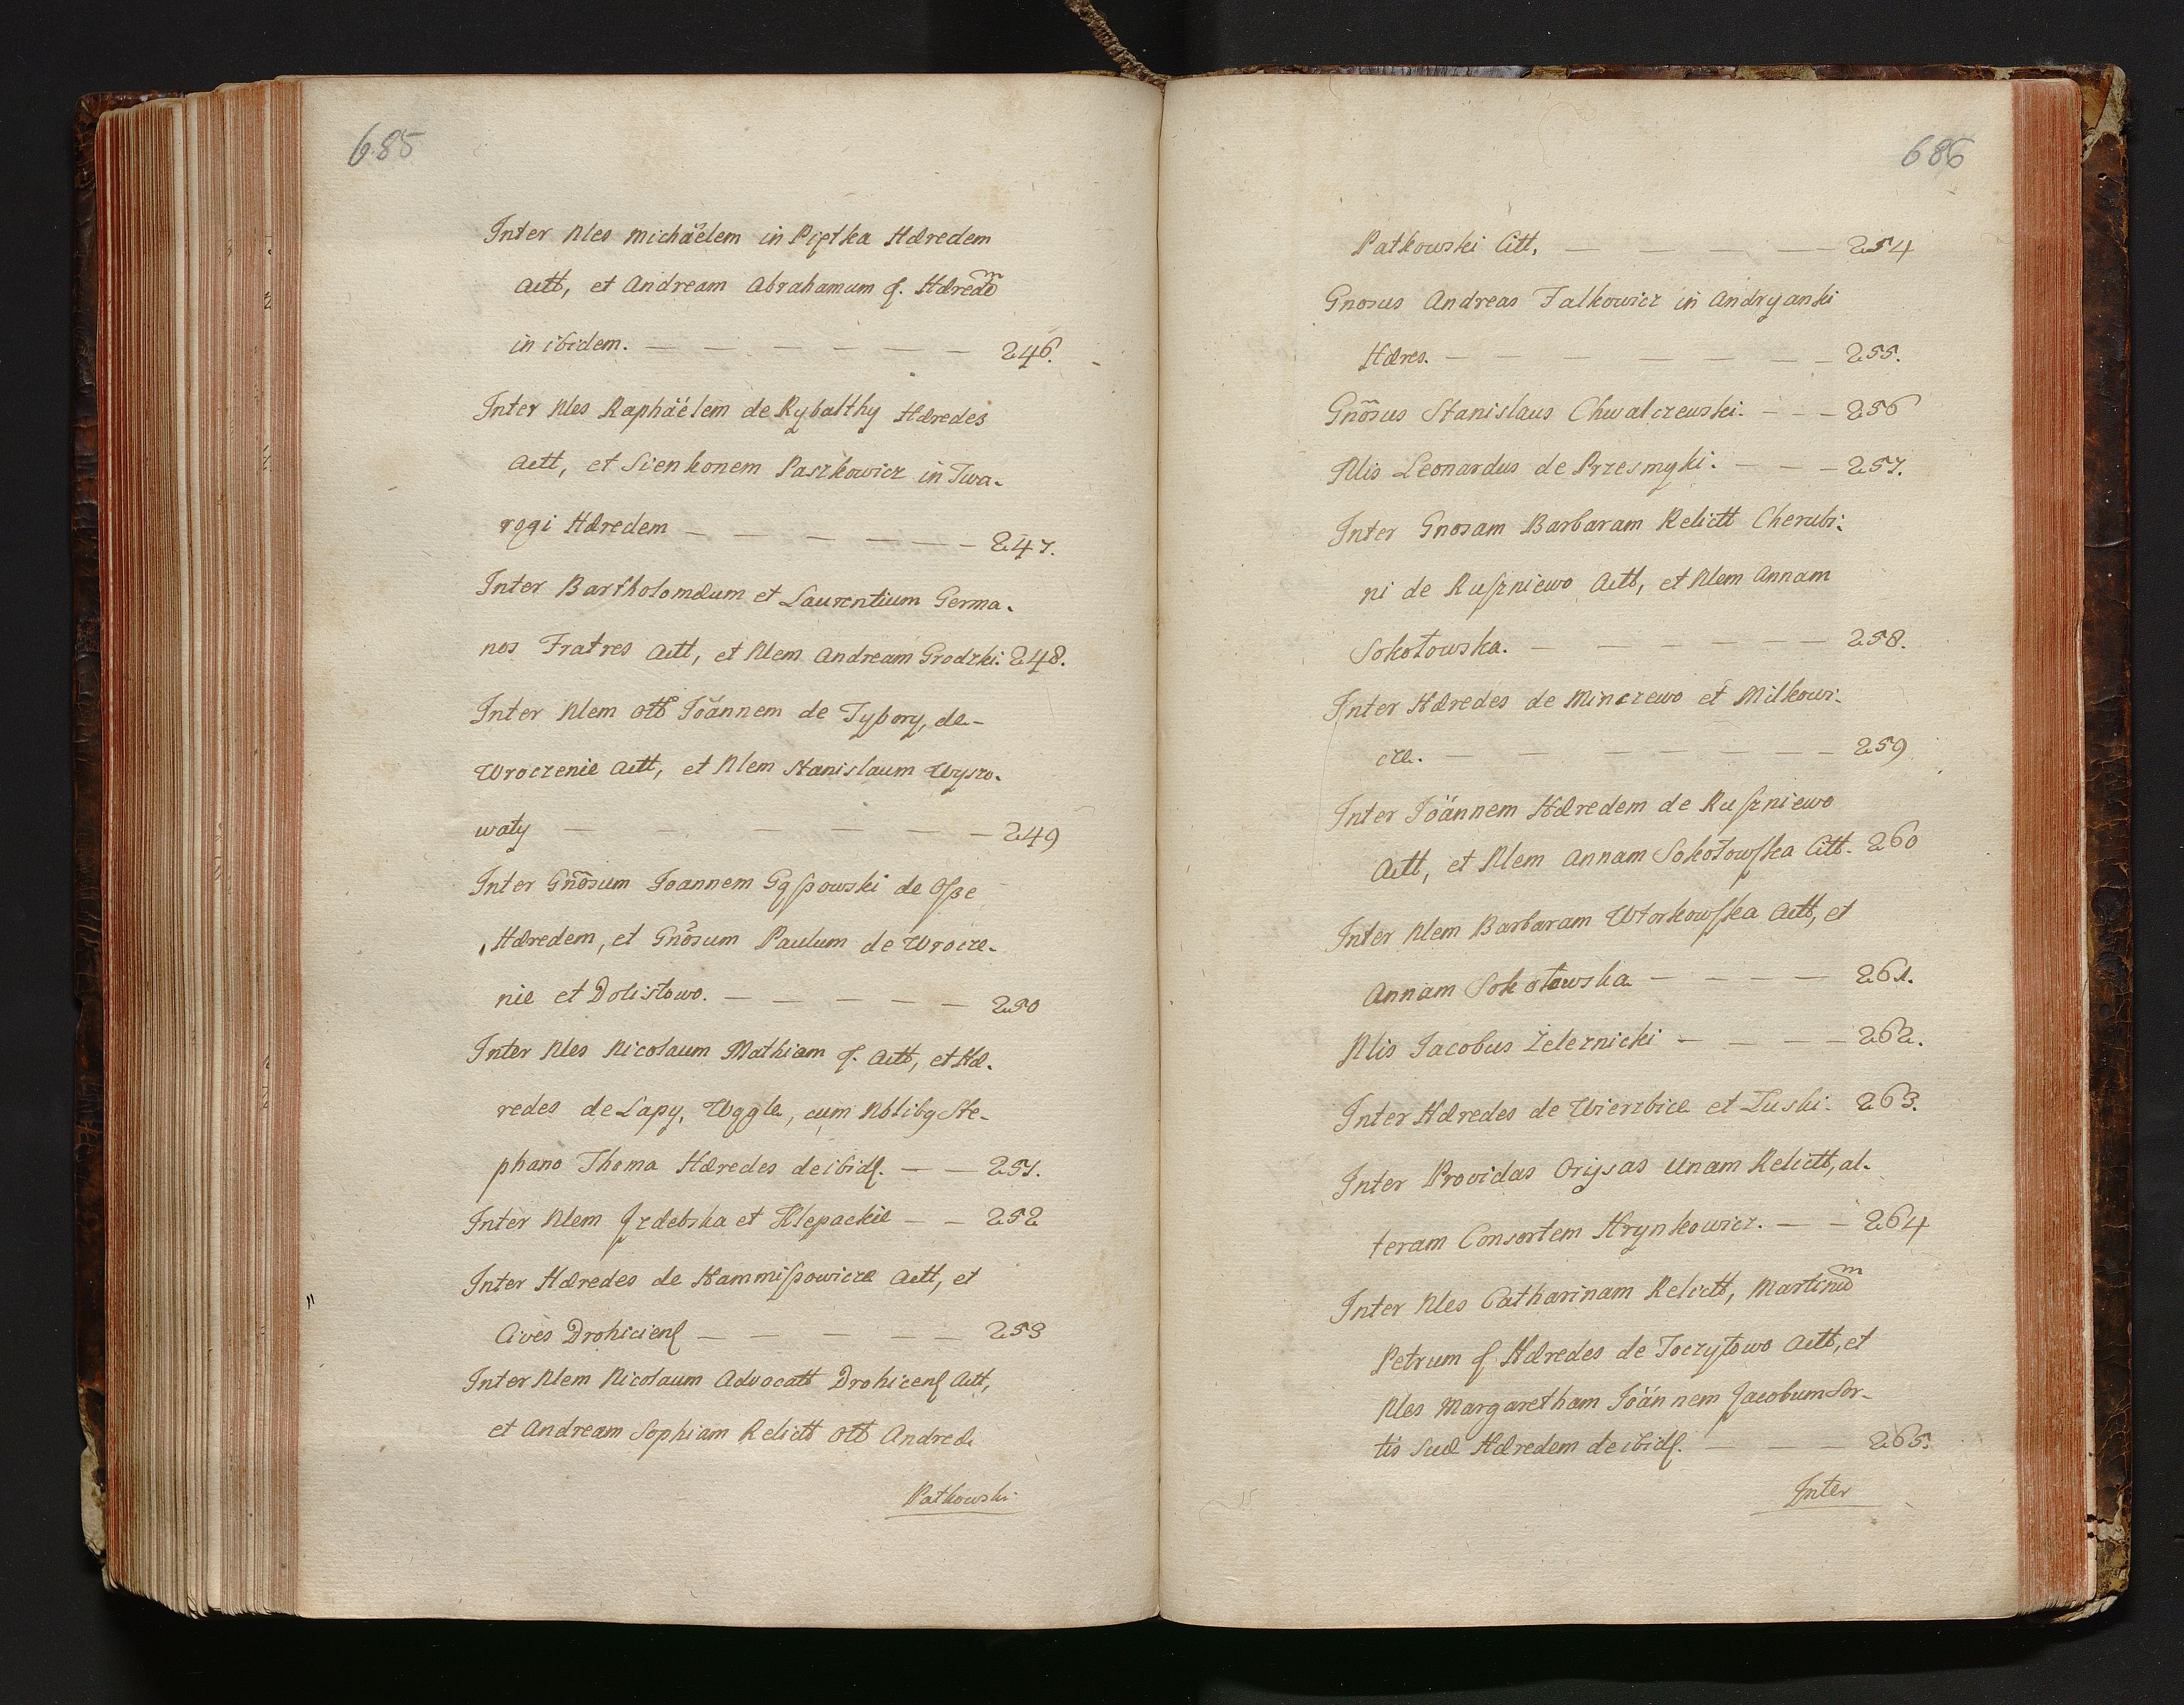 685
Inter Nles Michäelem in Piętka Hæredem
Actt, et Andream Abrahamum q. Hærede᷉m
in ibidem. — — — — — — 246.
Inter Nles Raphäélem de Rybalthy Hæredes
Actt, et Sienkonem Paszkowicz in Twa-
rogi Hæredem — — — — — 247.
Inter Bartholomæum et Laurentium Germa-
nos Fratres Actt, et Nlem Andream Grodzki. 248.
Inter Nlem Ott Joännem de Tybory, de-
Wroczenie Actt, et Nlem Stanislaum Wyszo-
waty — — — — — — 249
Inter Gnõsum Joannem Gąſsowski de Oſse
Hæredem, et Gnõsum Paulum de Wrocze-
nie et Dolistowo. — — — — — 250
Inter Nles Nicolaum Mathiam q. Actt, et Hæ-
redes de Łapy, Wggle, cum Nblibq Ste-
phano Thoma Hæredes de ibidq. — — 251.
Inter Nlem Jzdebska et Klepackie — — 252
Inter Hæredes de Hammiſsowicze Actt, et
Cives Drohicienq — — — — — 253
Inter Nlem Nicolaum Advocatt Drohicenq Actt,
et Andream Sophiam Relictt Ott Andreæ
Patkowski
686
Patkowski Citt, — — — — 254
Gnosus Andreas Falkowicz in Andryanki
Hæres. — — — — — — 255.
Gnõsus Stanislaus Chwalczewski. — — — 256
Nlis Leonardus de Przesmyki. — — — 257.
Inter Gnosam Barbaram Relictt Cherubi-
ni de Ruſzniewo Actt, et Nlem Annam
Sokołowska. — — — — — 258.
Inter Hæredes de Minczewo et Milkowi-
cze. — — — — — — 259
Inter Joánnem Hæredem de Ruſzniewo
Actt, et Nlem Annam Sokołowſka Citt. 260
Inter Nlem Barbaram Wtorkowſka Actt, et
Annam Sokołowska — — — — 261.
Nlis Jacobus Zeleznicki — — — — 262.
Inter Hæredes de Wierzbice et Łuski. 263.
Inter Providas Orysas Unam Relictt, al-
teram Consortem Hrynkowicz. — — 264
Inter Nles Catharinam Relictt, Martinu᷉m
Petrum q Hæredes de Toczyłowo Actt, et
Nles Margaretham Joánnem Jacobum Sor-
tis Suæ Hæredem de ibidq. — — — 265.
Inter